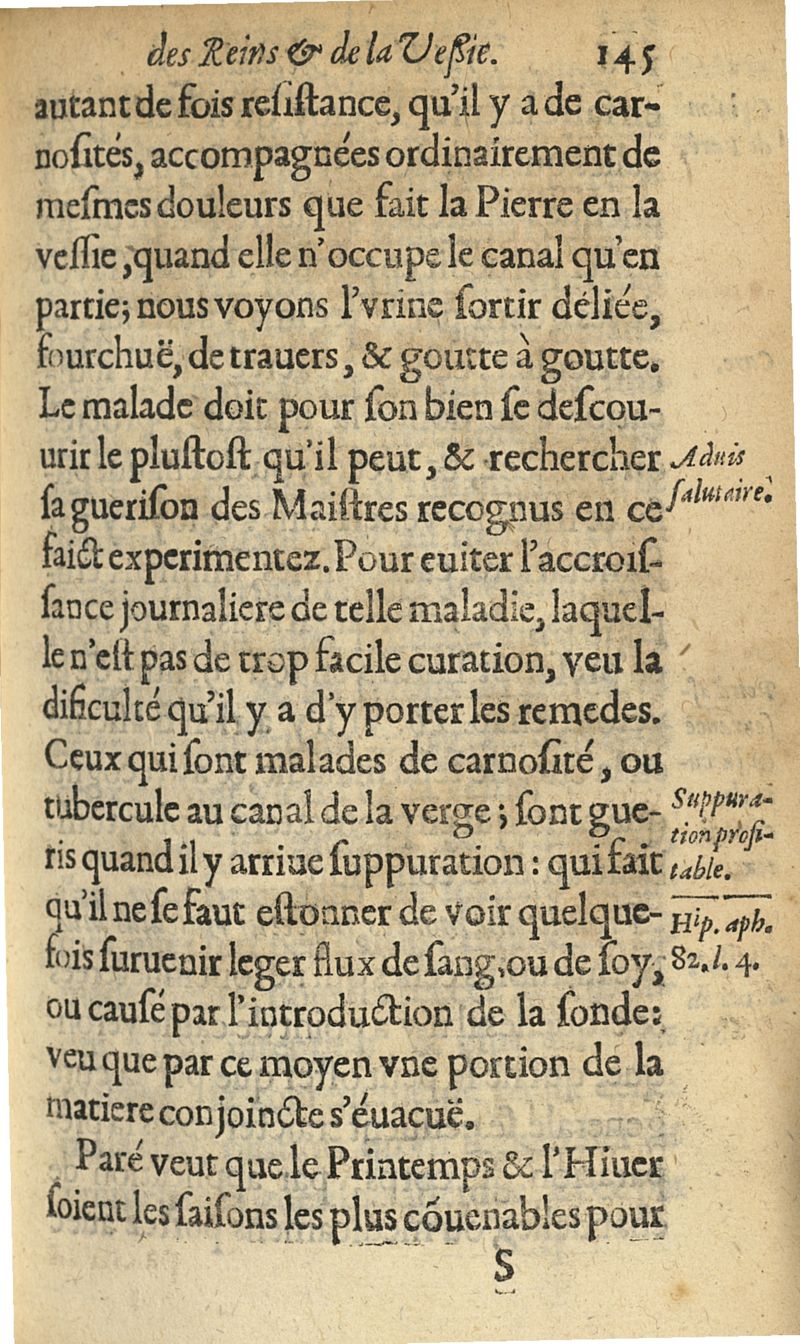 des Reins & de la Veſſie. 145
autant de fois reſiſtance, qu'il y a de car-
noſités, accompagnées ordinairement de
meſmes douleurs que fait la Pierre en la
veſſie, quand elle n'occupe le canal qu'en
partie; nous voyons l'vrine ſortir déliée,
fourchuë, de trauers, & goutte à goutte.
Le malade doit pour ſon bien ſe deſcou-
urir le pluſtoſt qu'il peut, & rechercher
ſa gueriſon des Maiſtres recognus en ce
faict experimentez. Pour euiter l'accroiſ-
ſance journaliere de telle maladie, laquel-
le n'eſt pas de trop facile curation, veu la
dificulté qu'il y a d'y porter les remedes.
Ceux qui ſont malades de carnoſité, ou
tubercule au canal de la verge; ſont gue-
ris quand il y arriue ſuppuration: qui fait
qu'il ne ſe faut eſtonner de voir quelque-
fois ſuruenir leger flux de ſang, ou de ſoy,
ou cauſé par l'introduction de la ſonde:
veu que par ce moyen vne portion de la
matiere conjoincte s'éuacuë.
Paré veut que le Printemps & l'Hiuer
ſoient les ſaiſons les plus cõuenables pour
S
Aduis
ſalutaire.
Suppura-
tion profi-
table.
Hip. aph.
82. l. 4.